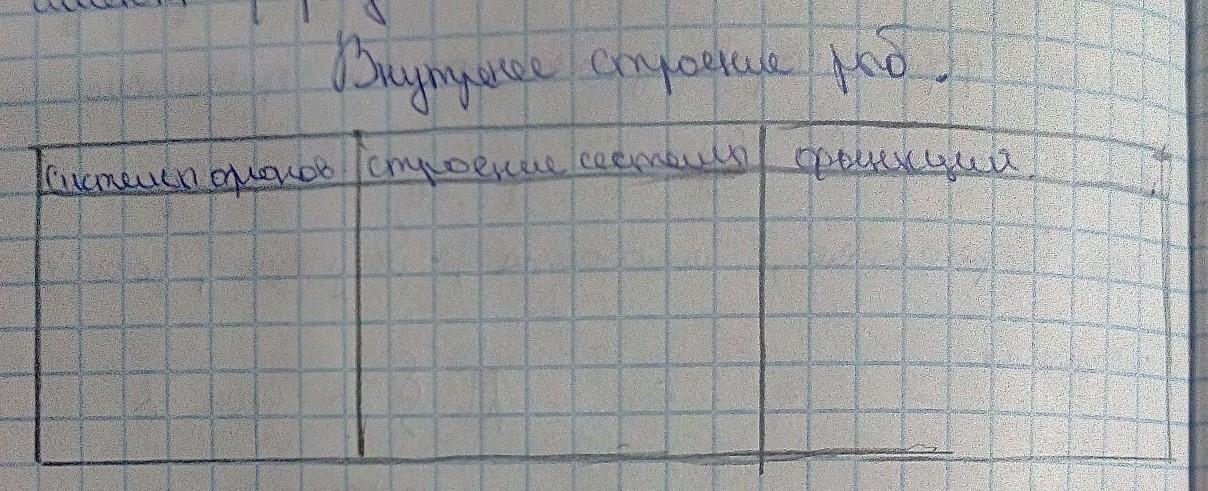 Внутренее строение рыб.
системы органов строение системы функции